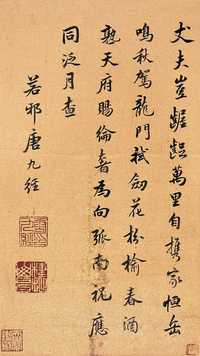 丈夫豈齷齪萬里自攜家恒岳
鳴秋駕龍門拭劍花枌榆春酒
熟天府賜綸奢爲向弧南祝應
同泛月查
若邪唐九經